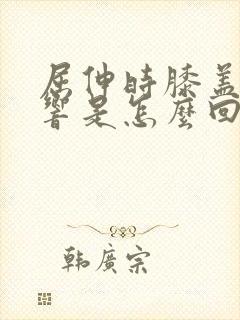 屈伸時膝盖
響是怎麼回
韓廣宗